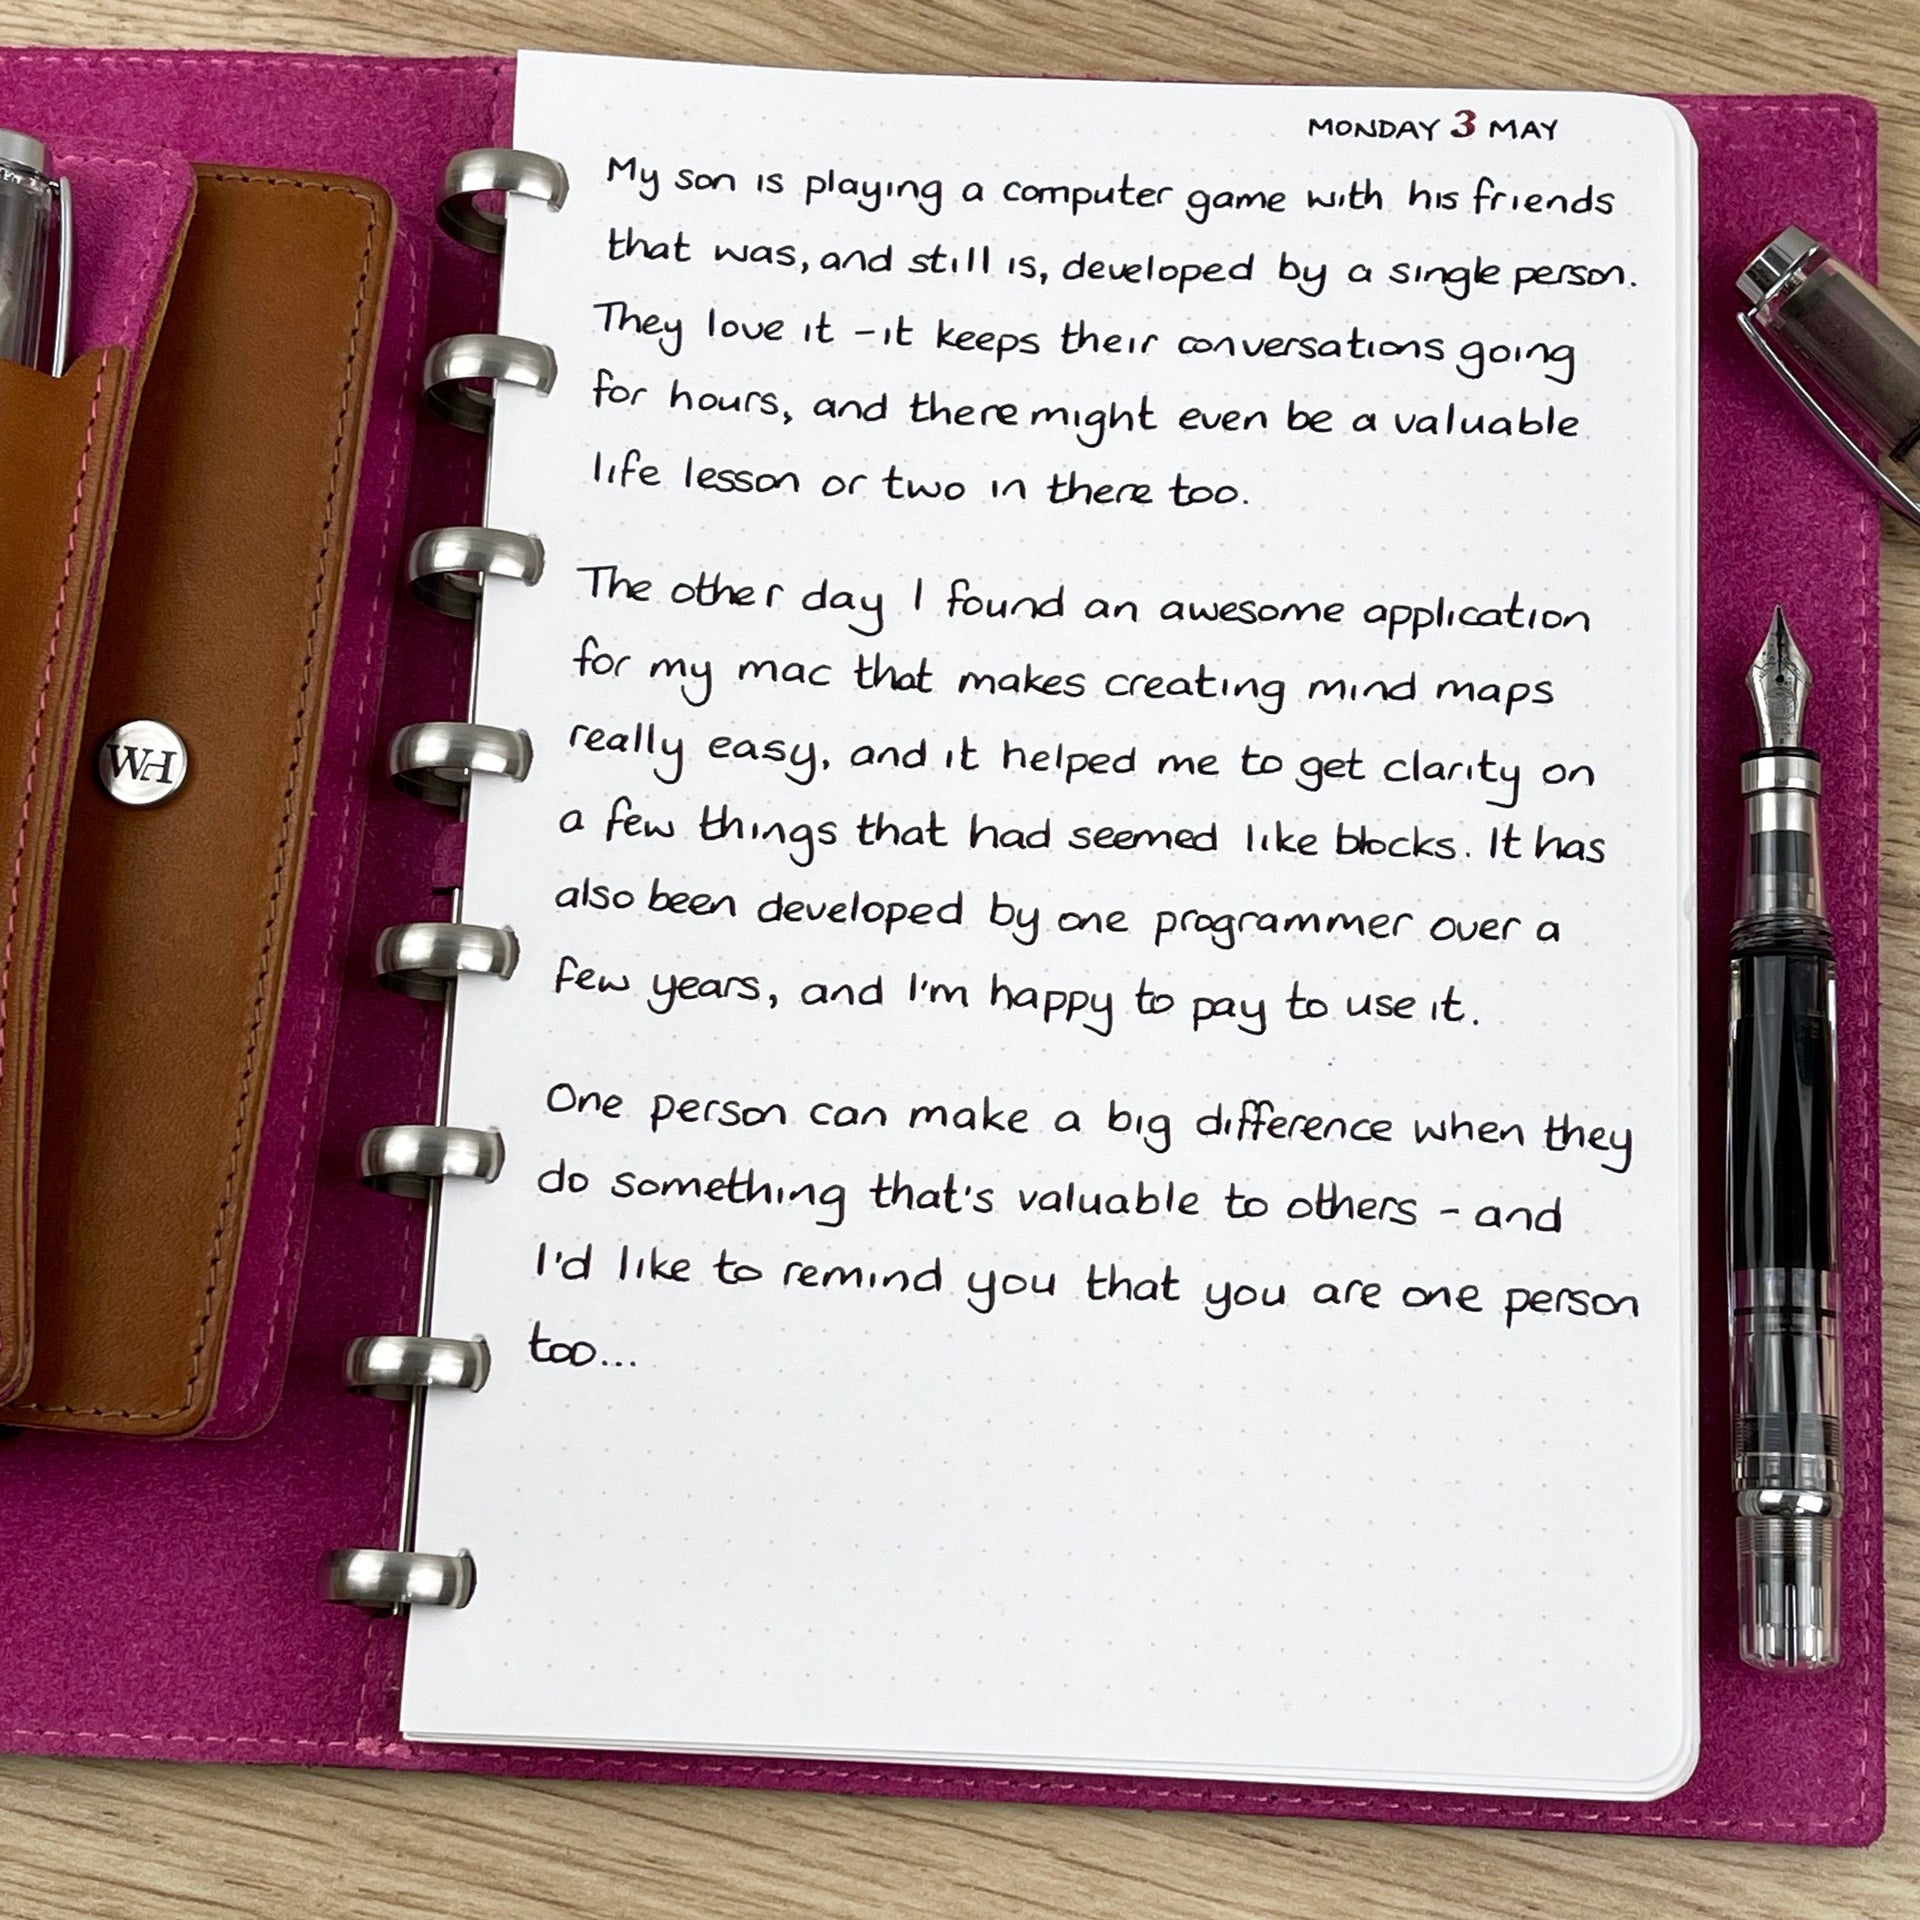 MONDAY 3 MAY
My son is playing a computer game with his friends
that was, and still is, developed by a single person.
They love it - it keeps their conversations going
for hours, and there might even be a valuable
life lesson or two in there too.
The other day I found an awesome application
for my mac that makes creating mind maps
really easy, and it helped me to get clarity on
a few things that had seemed like blocks. It has
also been developed by one programmer over a
few years, and I'm happy to pay to use it.
One person can make a big difference when they
do something that's valuable to others - and
I'd like to remind you that you are one person
too...
WH